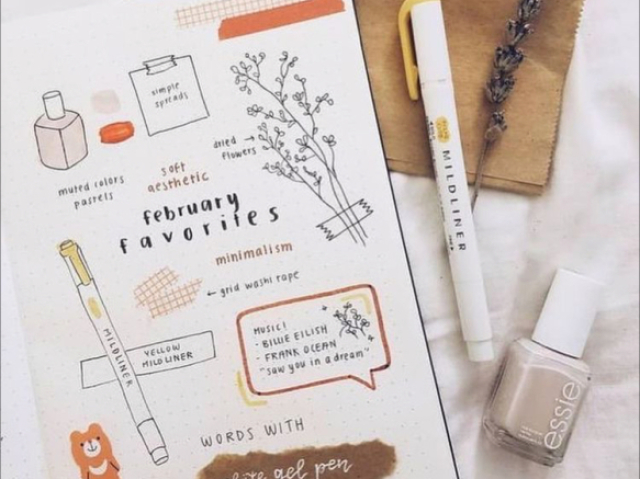 simple
spreads
dried
flowers
muted colors
pastels
soft
aesthetic
february
favorites
minimalism
← grid washi tape
MUSIC!
- BILLIE EILISH
- FRANK OCEAN
"saw you in a dream"
YELLOW
MILDLINER
MILDLINER
WORDS WITH
gel pen
MILDLINER
essie